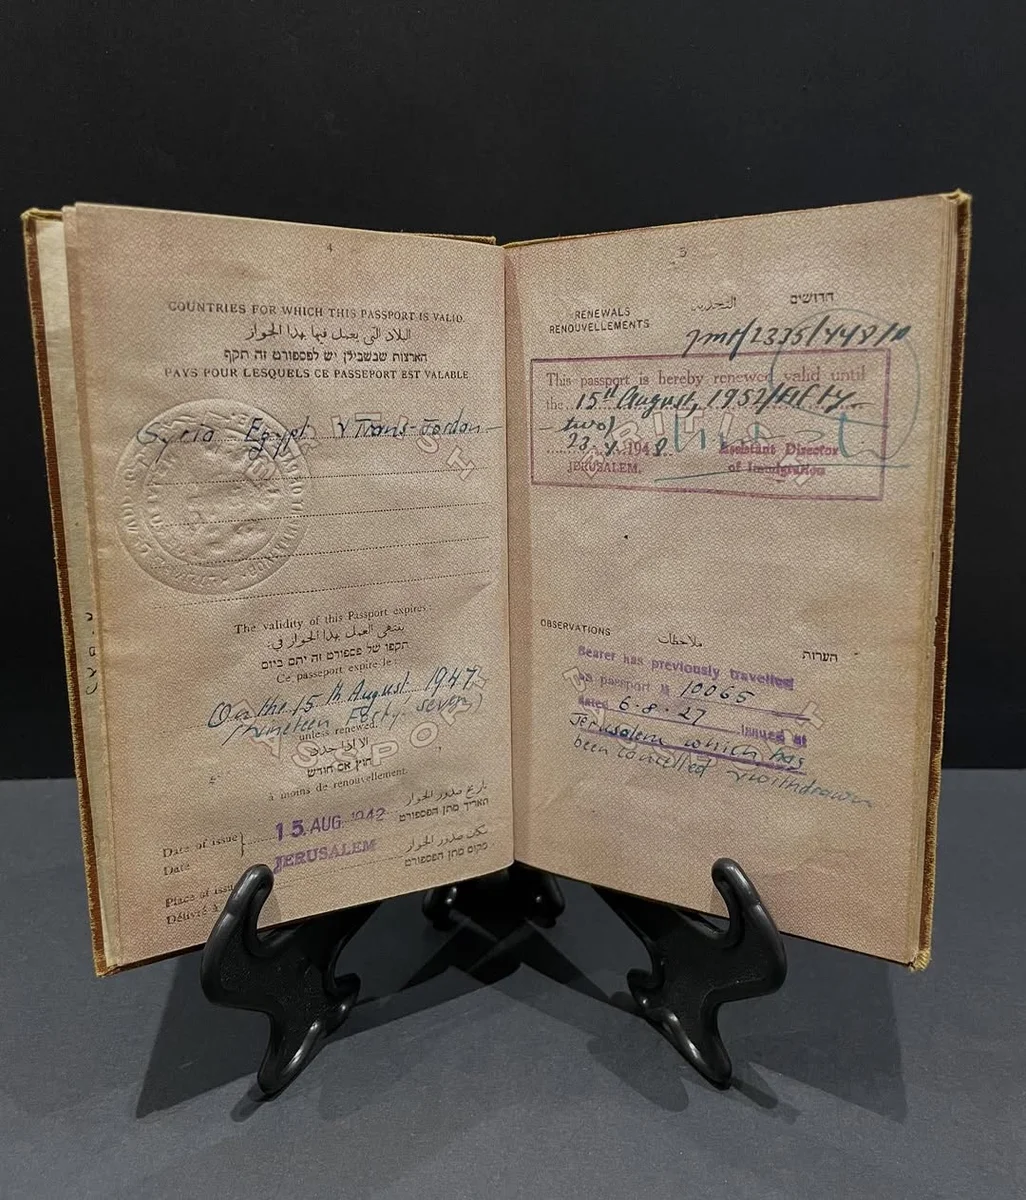 4
COUNTRIES FOR WHICH THIS PASSPORT IS VALID.
البلاد التي يعمل فيها بهذا الجواز
הארצות שבשבילן יש לפספורט זה תקף
PAYS POUR LESQUELS CE PASSEPORT EST VALABLE
Syria Egypt & Trans-Jordan
The validity of this Passport expires:
ينتهي العمل بهذا الجواز في:
תקפו של פספורט זה יתם ביום
Ce passeport expire le:
On the 15th August 1947
(nineteen Forty seven)
unless renewed.
الا اذا جدد
חוץ אם חודש
à moins de renouvellement.
Date of issue
تاريخ صدور الجواز
15 AUG 1942
Date
תאריך מתן הפספורט
JERUSALEM
Place of issue
مكان صدور الجواز
Délivré à
מקום מתן הפספורט
5
RENEWALS التجديد חדושים
RENOUVELLEMENTS
This passport is hereby renewed valid until
the 15th August, 1952/Fifty-
two)
23. 1948 Assistant Director
JERUSALEM. of Immigration
OBSERVATIONS ملاحظات הערות
Bearer has previously travelled
on passport № 10065
dated 6-8-27 issued at
Jerusalem which has
been cancelled & withdrawn
BRITISH
PASSPORT